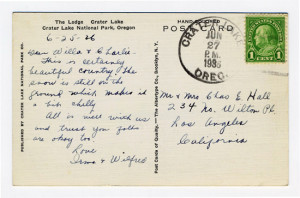 The Lodge Crater Lake
Crater Lake National Park, Oregon
HAND-COLORED
POST CARD
6-25-36
Dear Willa & Charlie.
This is certainly
beautiful country. The
snow is still on the
ground which makes it
a bit chilly
All is well with us
and trust you folks
are okay too.
Love
Irma & Wilfred
PUBLISHED BY CRATER LAKE NATIONAL PARK CO.
Post Cards of Quality. — The Albertype Co., Brooklyn, N.Y.
CRATER LAKE
JUN
27
P.M.
1936
OREG.
1 CENT 1
Mr & Mrs Chas E Hall
234 No. Wilton Pl.
Los Angeles
California